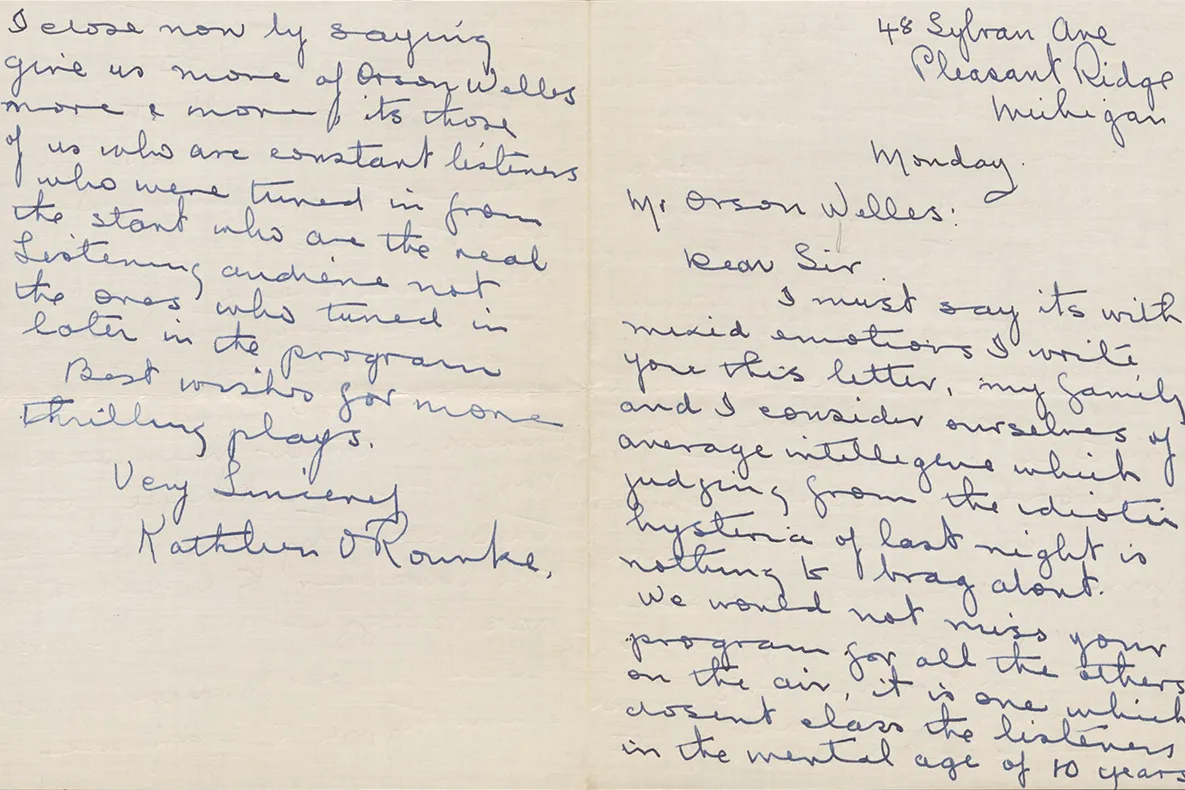 48 Sylvan Ave
Pleasant Ridge
Michigan
Monday.
Mr Orson Welles:
Dear Sir
I must say its with
mixid emotions I write
you this letter, my family
and I consider ourselves of
average intelligence which
judging from the idiotic
hysteria of last night is
nothing to brag about.
We would not miss your
program for all the others
on the air, it is one which
dosent class the listeners
in the mental age of 10 years
I close now by saying
give us more of Orson Welles
more & more, its those
of us who are constant listeners
who were tuned in from
the start who are the real
Listening audience not
the ones who tuned in
later in the program
Best wishes for more
thrilling plays.
Very Sincerely
Kathleen O'Rourke.